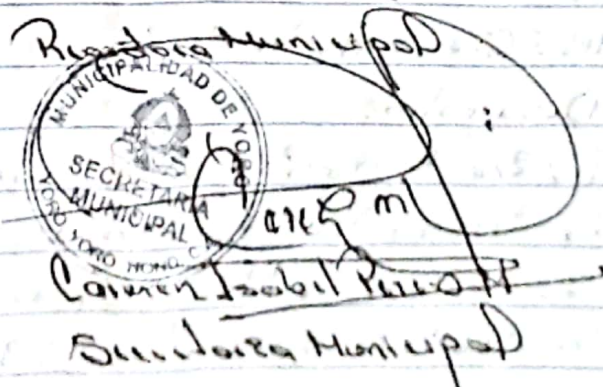 Regidora Municipal
MUNICIPALIDAD DE YORO
SECRETARIA
MUNICIPAL
YORO YORO HOND. C.A.
Carmen Isabel
Secretaria Municipal